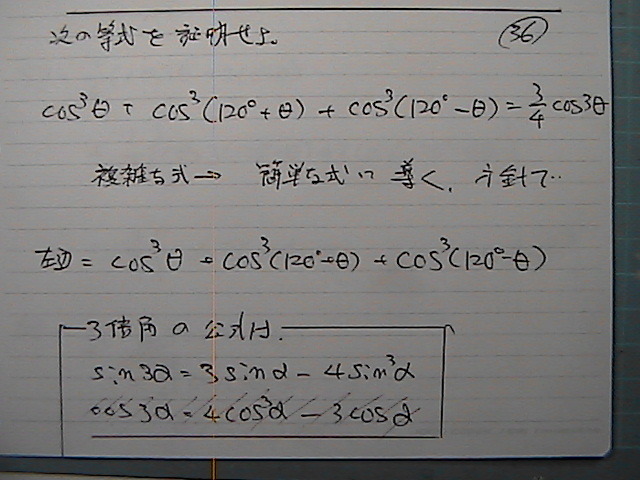 次の等式を証明せよ。 (36)
cos³θ + cos³(120°+θ) + cos³(120°-θ) = 3/4 cos3θ
複雑な式→ 簡単な式に導く、方針で‥
左辺 = cos³θ + cos³(120°+θ) + cos³(120°-θ)
3倍角の公式は、
sin3α = 3sinα - 4sin³α
cos3α = 4cos³α - 3cosα